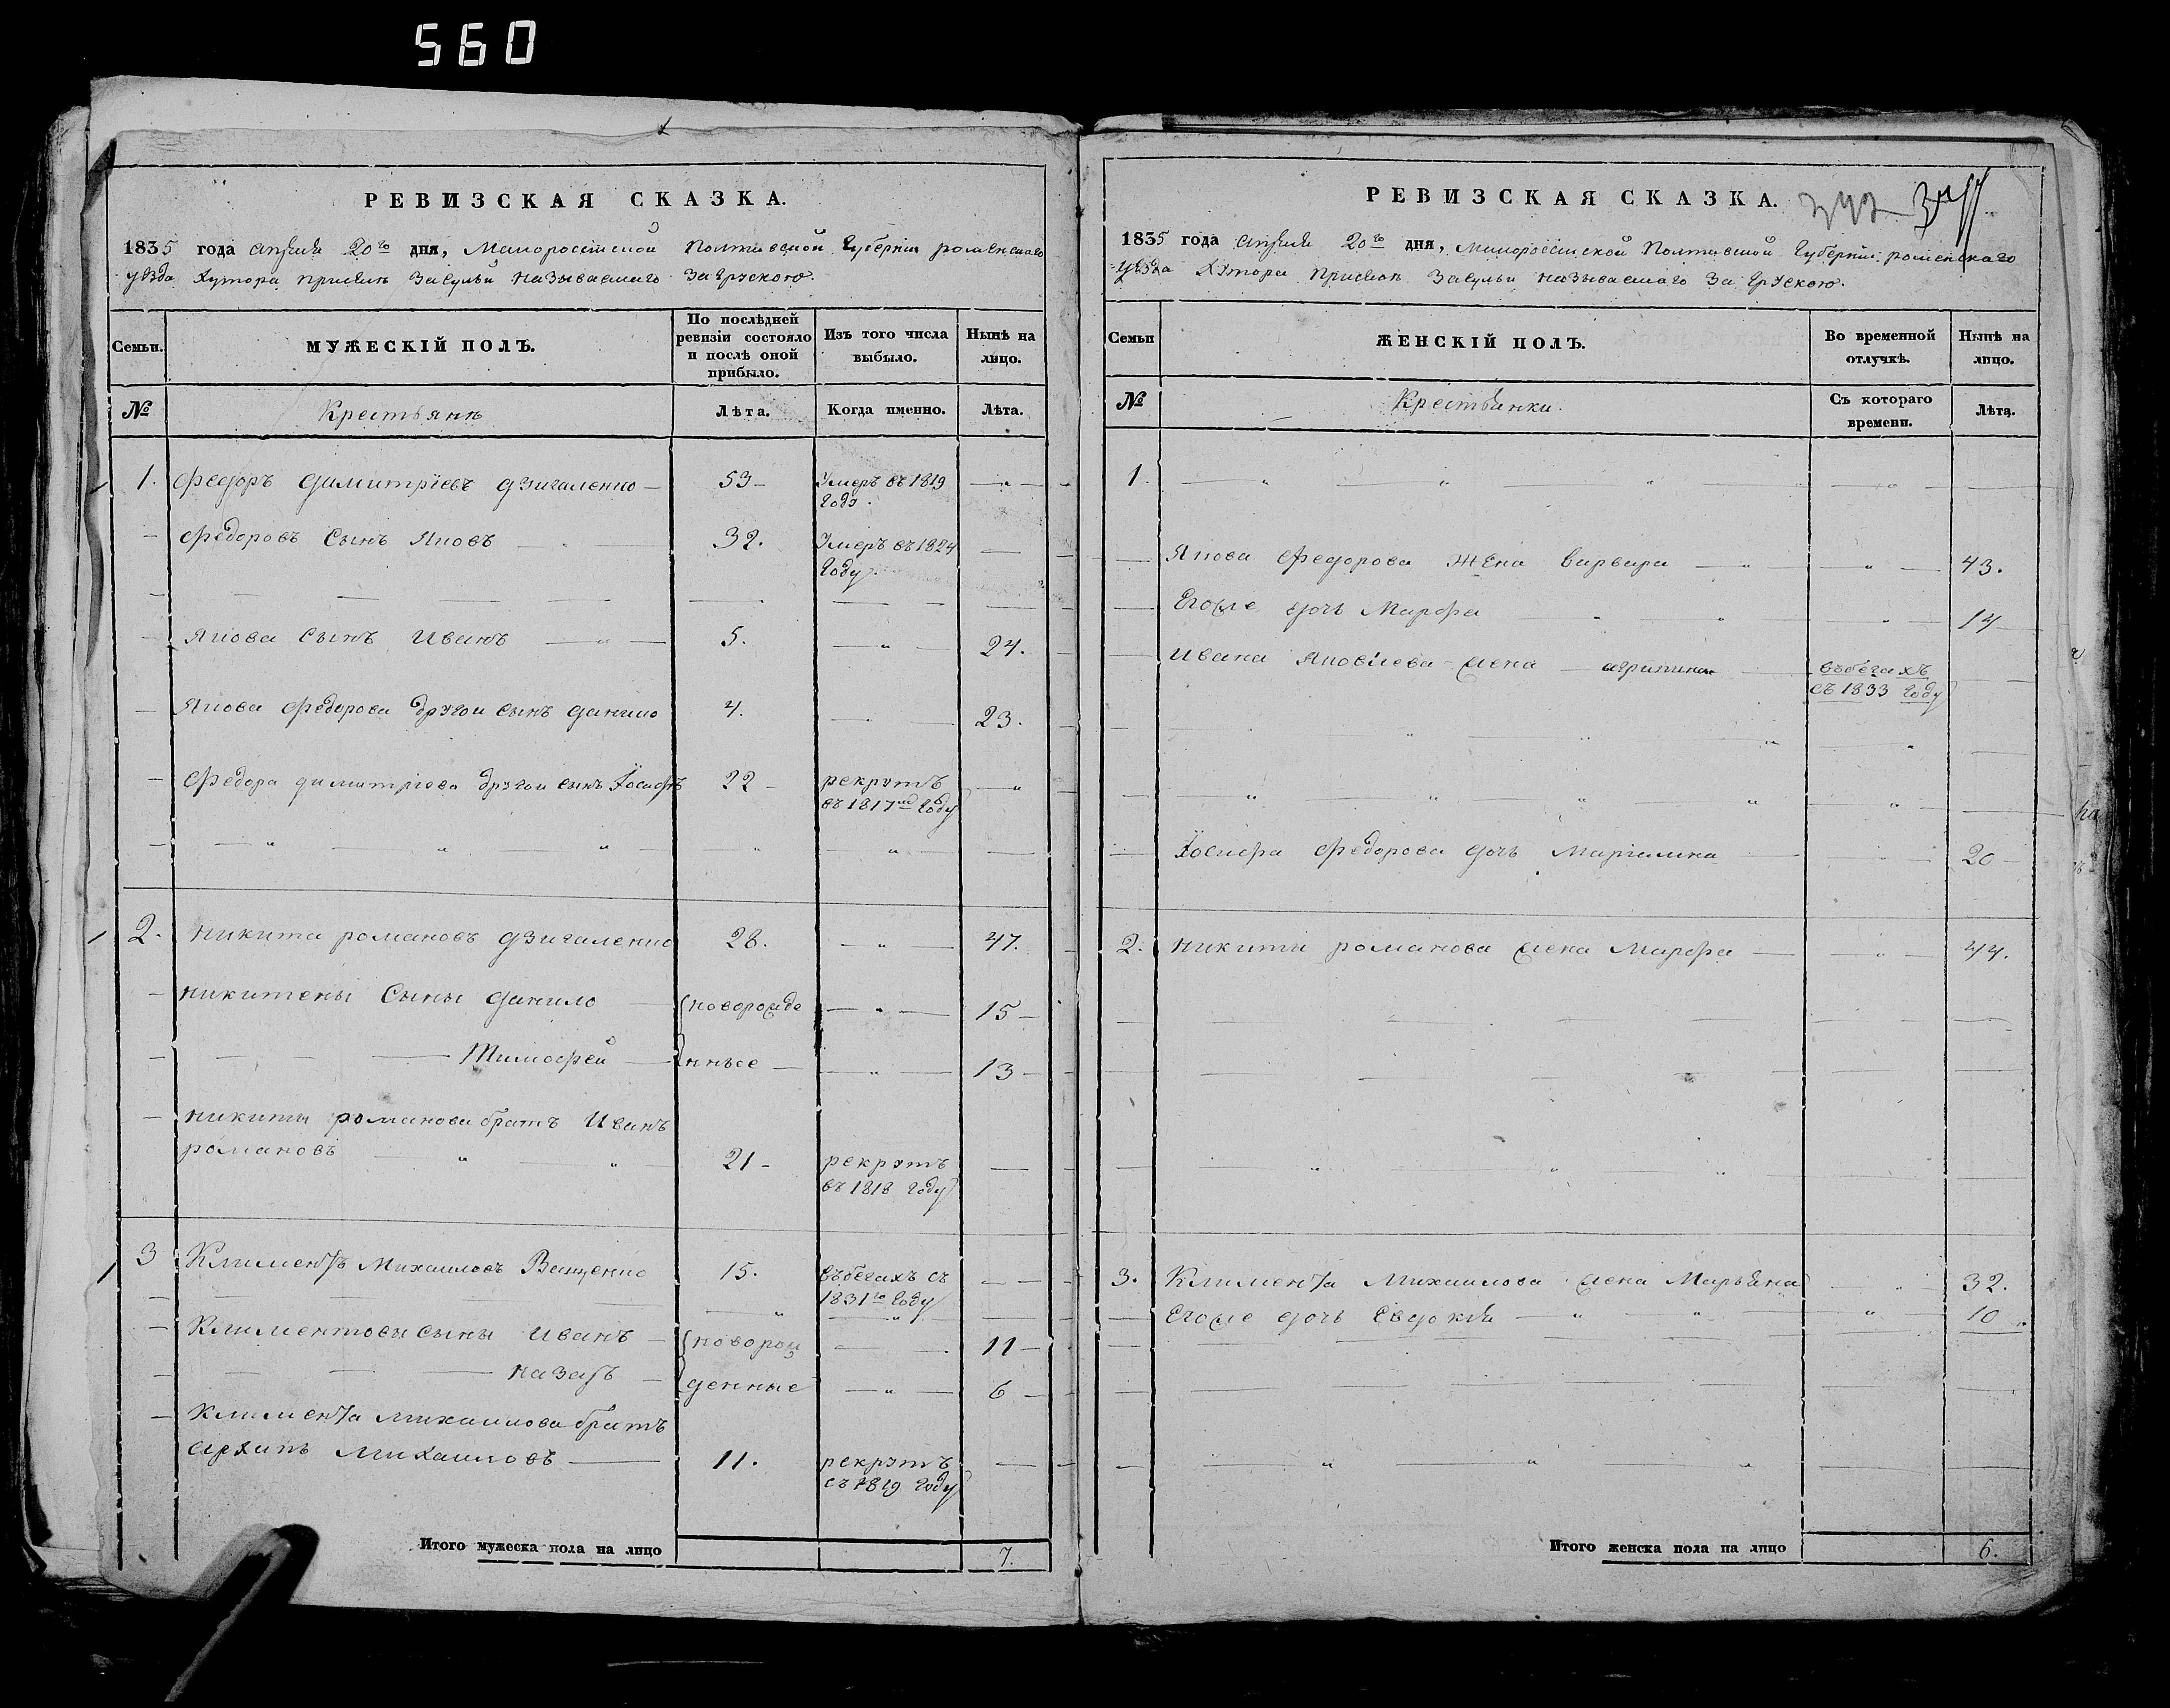 560
РЕВИЗСКАЯ СКАЗКА.
1835 года апреля 20го дня, Малоросiйской Полтавской Губернiи роменскаго
уѣзда Хутора при селѣ Засульи называемаго
Семьи.
МУЖЕСКІЙ ПОЛЪ.
По послѣдней ревизіи состояло и послѣ оной прибыло.
Изъ того числа выбыло.
Нынѣ на лицо.
№
Крестьянѣ
Лѣта.
Когда именно.
Лѣта.
1. Федоръ Димитрiевъ Дзигаленко — 53 — Умеръ въ 1819
Году.
— Федоровъ Сынъ Яковъ — 32. Умеръ въ 1824 —
Году.
— Якова Сынъ Иванъ — 5. — " — 24.
— Якова Федорова другои сынъ Данило 4. — 23.
— Федора димитрiева другои сынъ Ӏосифъ 22 — рекрутъ — "
въ 1817мъ Году
2. Никита романовъ Дзигаленко 28. — " — 47.
— Никитены Сыны Данило — новорожде — " — 15 —
— Тимофей — нные — " — 13 —
— Никиты романова братъ Иванъ
романовъ — " — " 21 — рекрутъ —
въ 1818 Году
3 Климентъ Михаиловъ Ващенко 15. въбегахъ съ —
1831го Году
— Климентовы сыны Иванъ — новорож — 11 —
— Назаръ — денные — " — 6 —
— Климента михаилова братъ
архипъ Михаиловъ — 11. рекрутъ —
съ 1819 Году
Итого мужеска пола на лицо
7.
РЕВИЗСКАЯ СКАЗКА.
1835 года апреля 20го дня, малоросiйской Полтавской Губернiи роменскаго
уѣзда Хутора при селѣ Засульи называемаго
Семьи
ЖЕНСКІЙ ПОЛЪ.
Во временной отлучкѣ.
Нынѣ на лицо.
№
Крестьянки.
Съ котораго времени.
Лѣта.
1.
— Якова Федорова Жена варвара — " — " — 43.
— Егоже дочь Марфа — " — 14
— Ивана Яковлева жена — агрипина въбегахъ —
съ 1833 Году
— Ӏосифа Федорова дочь — 20 —
2. Никиты романова жена Марфа — " — 44.
3. Климента Михаилова жена Марьяна 32.
— Егоже дочь Евдокия — " — " — " 10.
Итого женска пола на лицо
6.